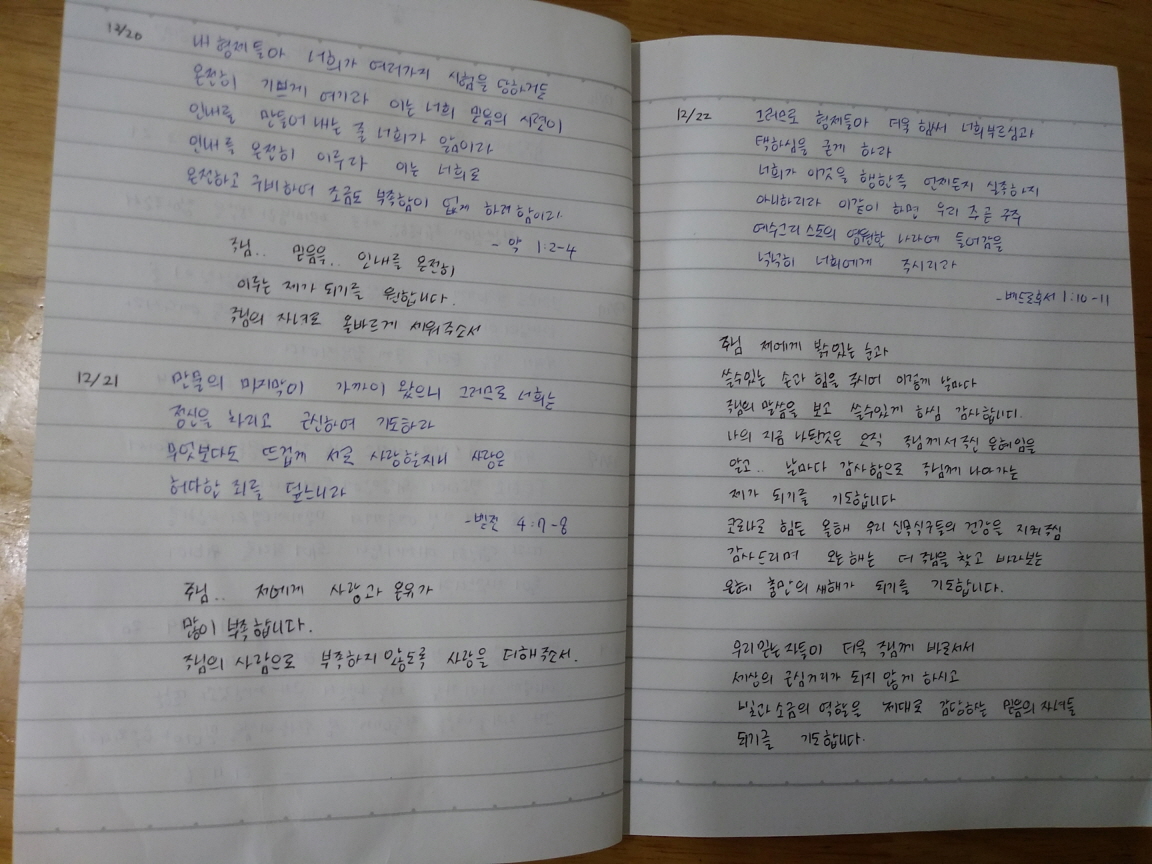 12/20 내 형제들아 너희가 여러가지 시험을 당하거든
온전히 기쁘게 여기라 이는 너희 믿음의 시련이
인내를 만들어 내는 줄 너희가 앎이라
인내를 온전히 이루라 이는 너희로
온전하고 구비하여 조금도 부족함이 없게 하려 함이라
- 약 1:2-4
주님.. 믿음우.. 인내를 온전히
이루는 제가 되기를 원합니다.
주님의 자녀로 올바르게 세워주소서
12/21 만물의 마지막이 가까이 왔으니 그러므로 너희는
정신을 차리고 근신하여 기도하라
무엇보다도 뜨겁게 서로 사랑할지니 사랑은
허다한 죄를 덮느니라
-벧전 4:7-8
주님.. 저에게 사랑과 온유가
많이 부족합니다.
주님의 사람으로 부족하지 않도록 사랑을 더해주소서.
12/22 그러므로 형제들아 더욱 힘써 너희부르심과
택하심을 굳게 하라
너희가 이것을 행한즉 언제든지 실족하지
아니하리라 이같이 하면 우리 주곧 구주
예수그리스도의 영원한 나라에 들어감을
넉넉히 너희에게 주시리라
-베드로후서 1:10-11
주님 제에게 볼수있는 눈과
쓸수있는 손과 힘을 주시어 이렇게 날마다
주님의 말씀을 보고 쓸수있게 하심 감사합니다.
나의 지금 나된것은 오직 주님께서주신 은혜임을
알고.. 날마다 감사함으로 주님께 나아가는
제가 되기를 기도합니다
코로나로 힘든 올해 우리 식구들의 건강을 지켜주심
감사드리며 오는해는 더 주님을 찾고 바라보는
은혜 충만의 새해가 되기를 기도합니다.
우리믿는자들이 더욱 주님께 바로서서
세상의 근심거리가 되지 않게 하시고
빛과 소금의 역할을 제대로 감당하는 믿음의 자녀들
되기를 기도합니다.